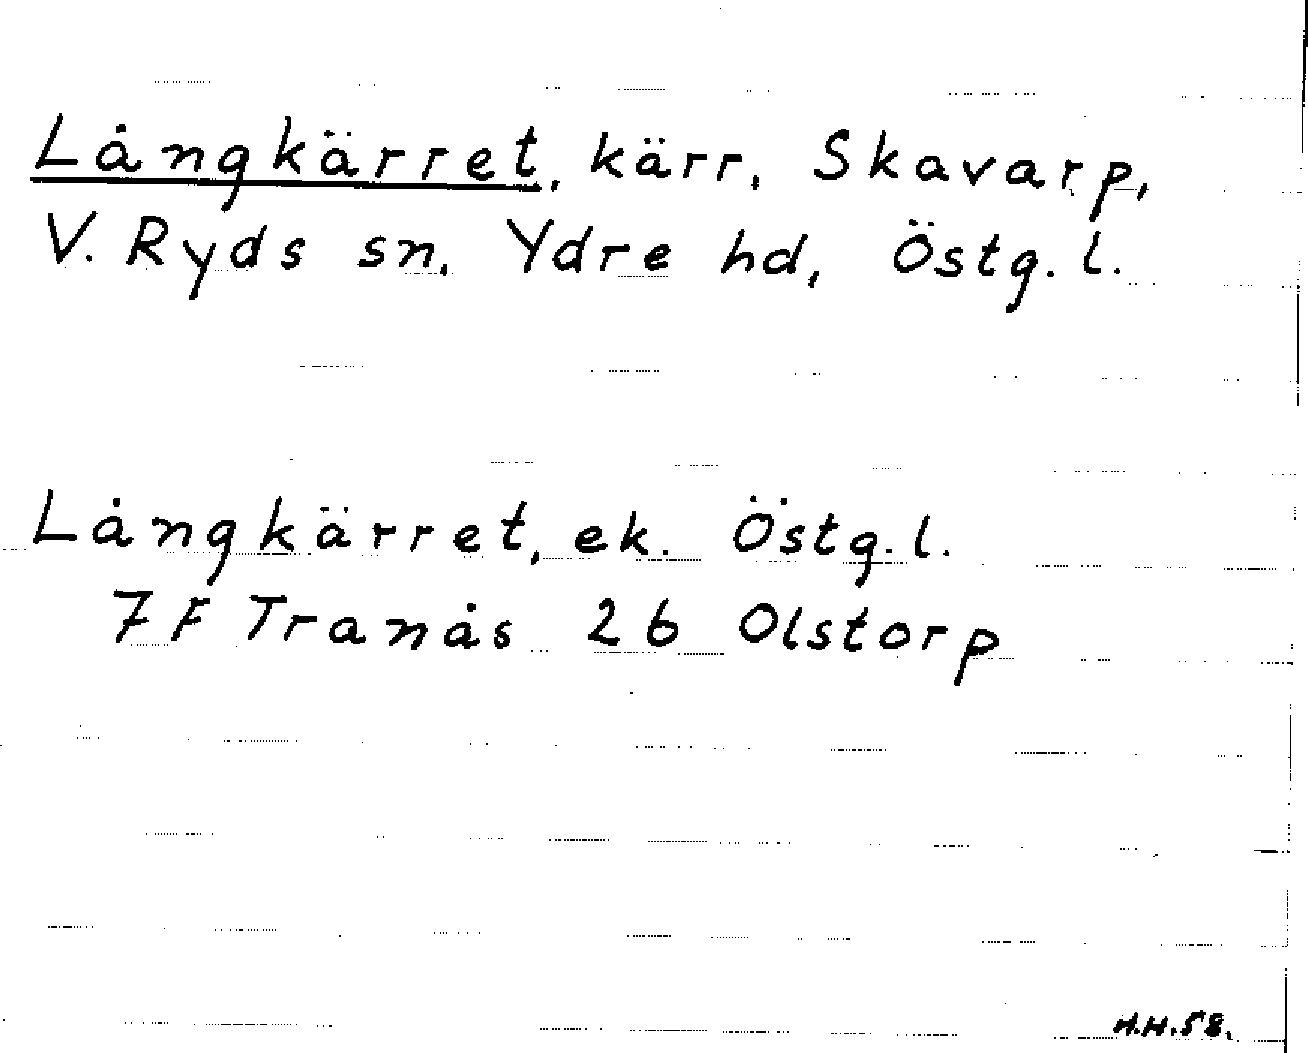 Långkärret, kärr, Skavarp,
V. Ryds sn, Ydre hd, Östg. l.
Långkärret, ek. Östg. l.
7F Tranås 2b Olstorp
H.H. 58.